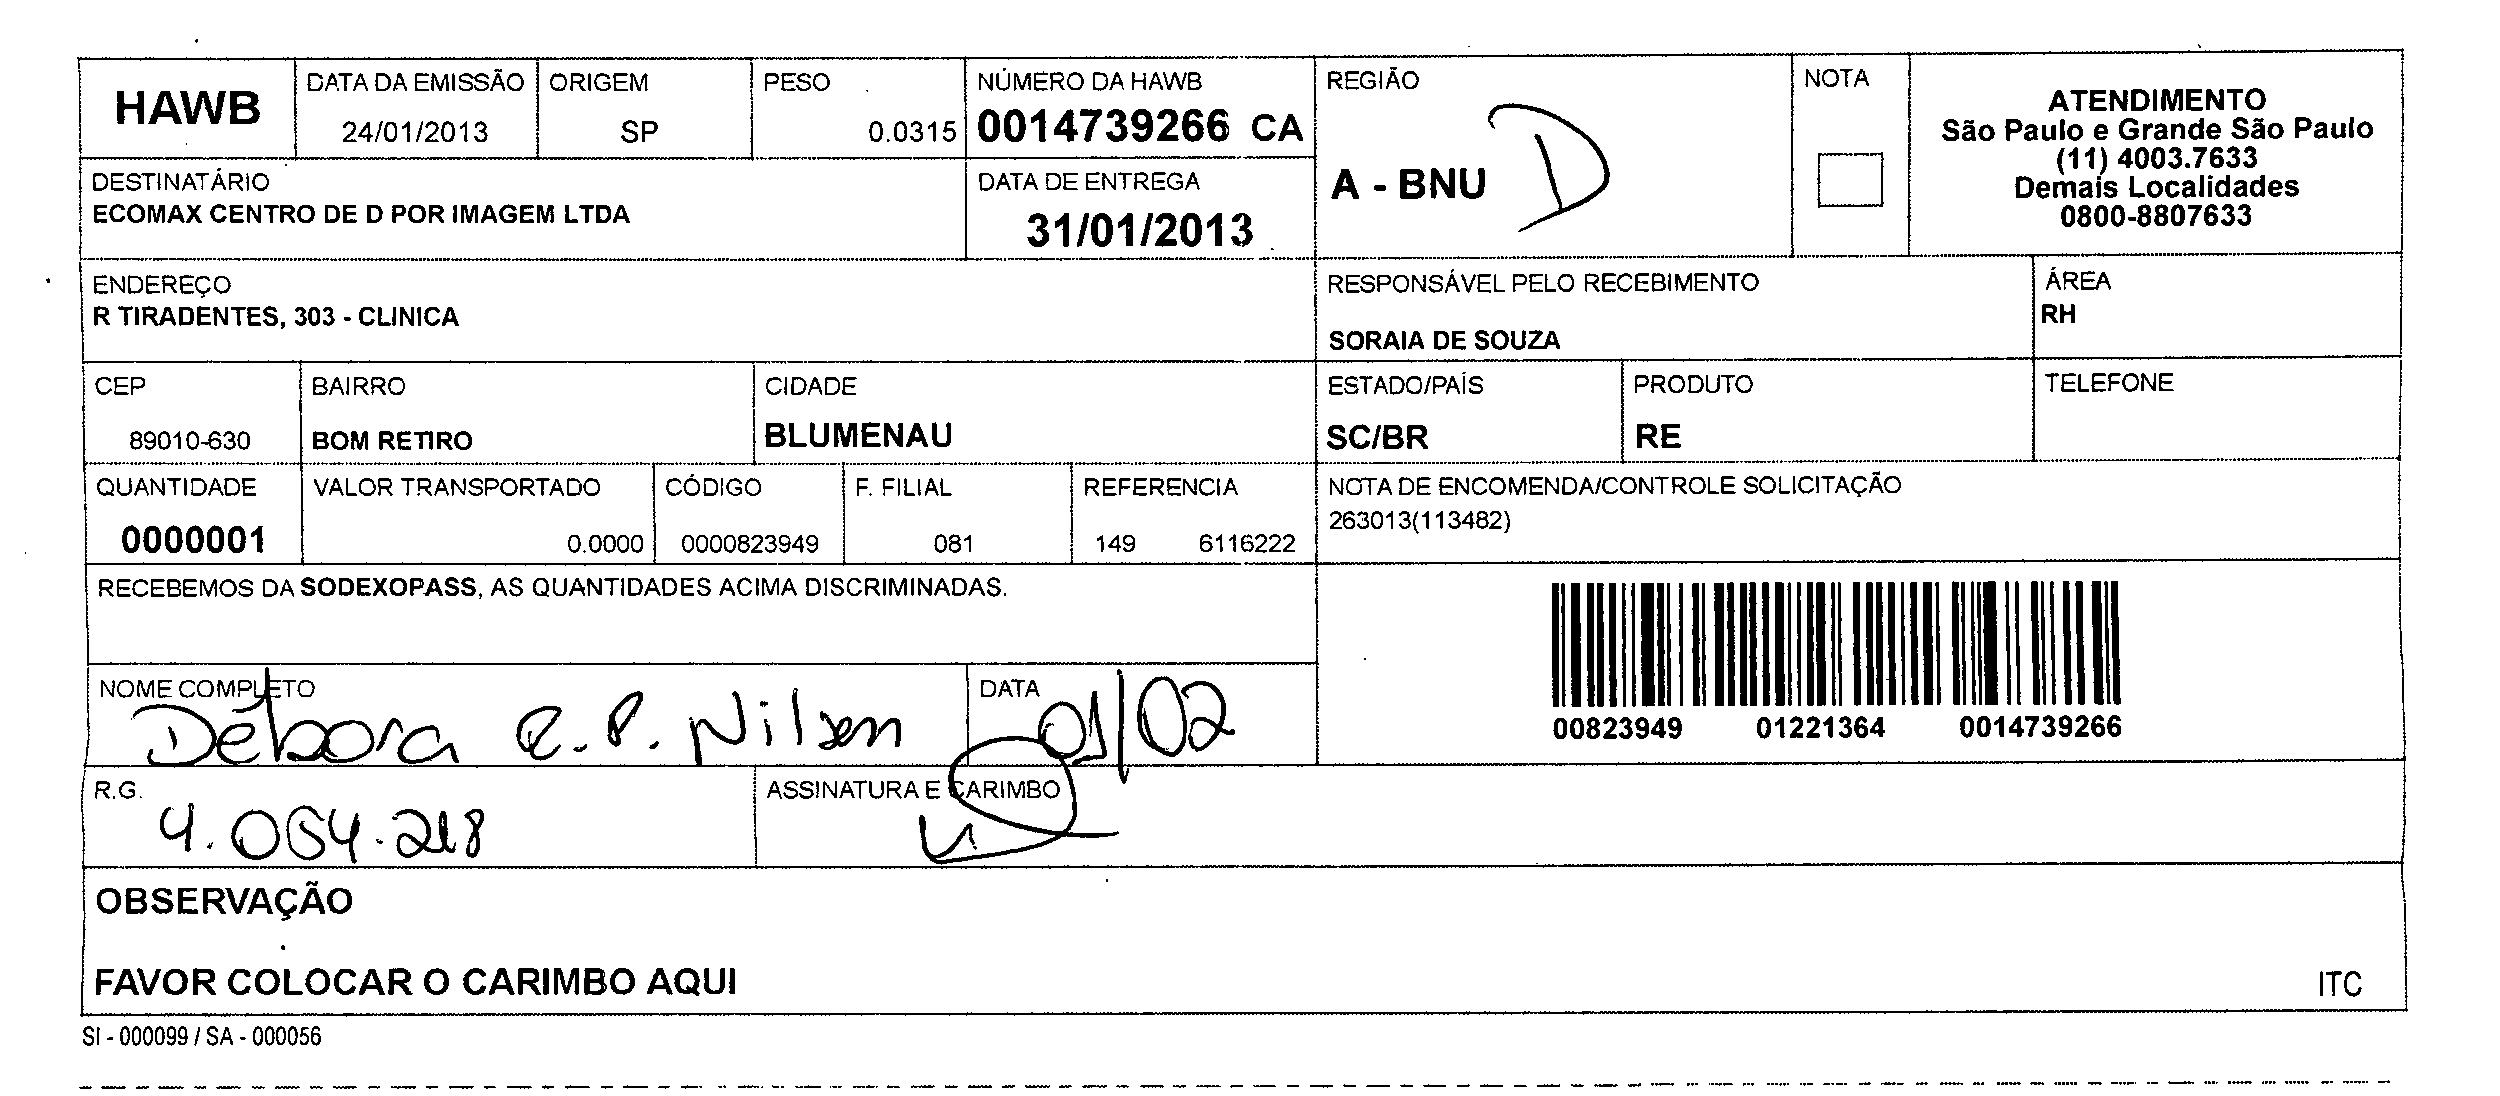 HAWB
DATA DA EMISSÃO
24/01/2013
ORIGEM
SP
PESO
0.0315
NÚMERO DA HAWB
0014739266 CA
REGIÃO
A - BNU D
NOTA
ATENDIMENTO
São Paulo e Grande São Paulo
(11) 4003.7633
Demais Localidades
0800-8807633
DESTINATÁRIO
ECOMAX CENTRO DE D POR IMAGEM LTDA
DATA DE ENTREGA
31/01/2013
ENDEREÇO
R TIRADENTES, 303 - CLINICA
RESPONSÁVEL PELO RECEBIMENTO
SORAIA DE SOUZA
ÁREA
RH
CEP
89010-630
BAIRRO
BOM RETIRO
CIDADE
BLUMENAU
ESTADO/PAÍS
SC/BR
PRODUTO
RE
TELEFONE
QUANTIDADE
0000001
VALOR TRANSPORTADO
0.0000
CÓDIGO
0000823949
F. FILIAL
081
REFERENCIA
149 6116222
NOTA DE ENCOMENDA/CONTROLE SOLICITAÇÃO
263013(113482)
RECEBEMOS DA SODEXOPASS, AS QUANTIDADES ACIMA DISCRIMINADAS.
00823949 01221364 0014739266
NOME COMPLETO
Débora R. P. Nilsen
DATA
01/02
R.G.
4.064.218
ASSINATURA E CARIMBO
OBSERVAÇÃO
FAVOR COLOCAR O CARIMBO AQUI
ITC
SI - 000099 / SA - 000056